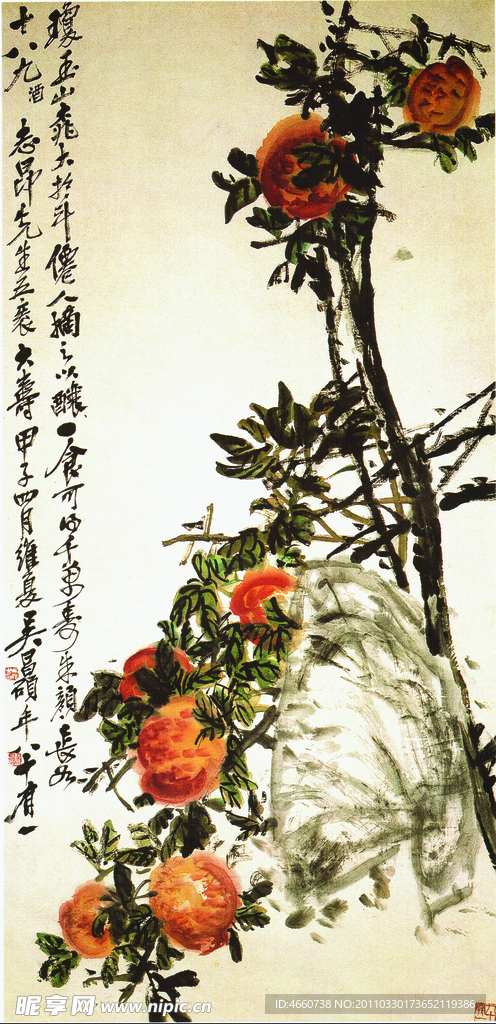 瓊玉山桃大於斗僊人摘之以釀酒一食可得千萬壽朱顏長如
十八九
志昂先生五袠大壽甲子四月維夏吳昌碩年八十有一
昵享网 www.nipic.cn
ID:4660738 NO:20110330173652119386